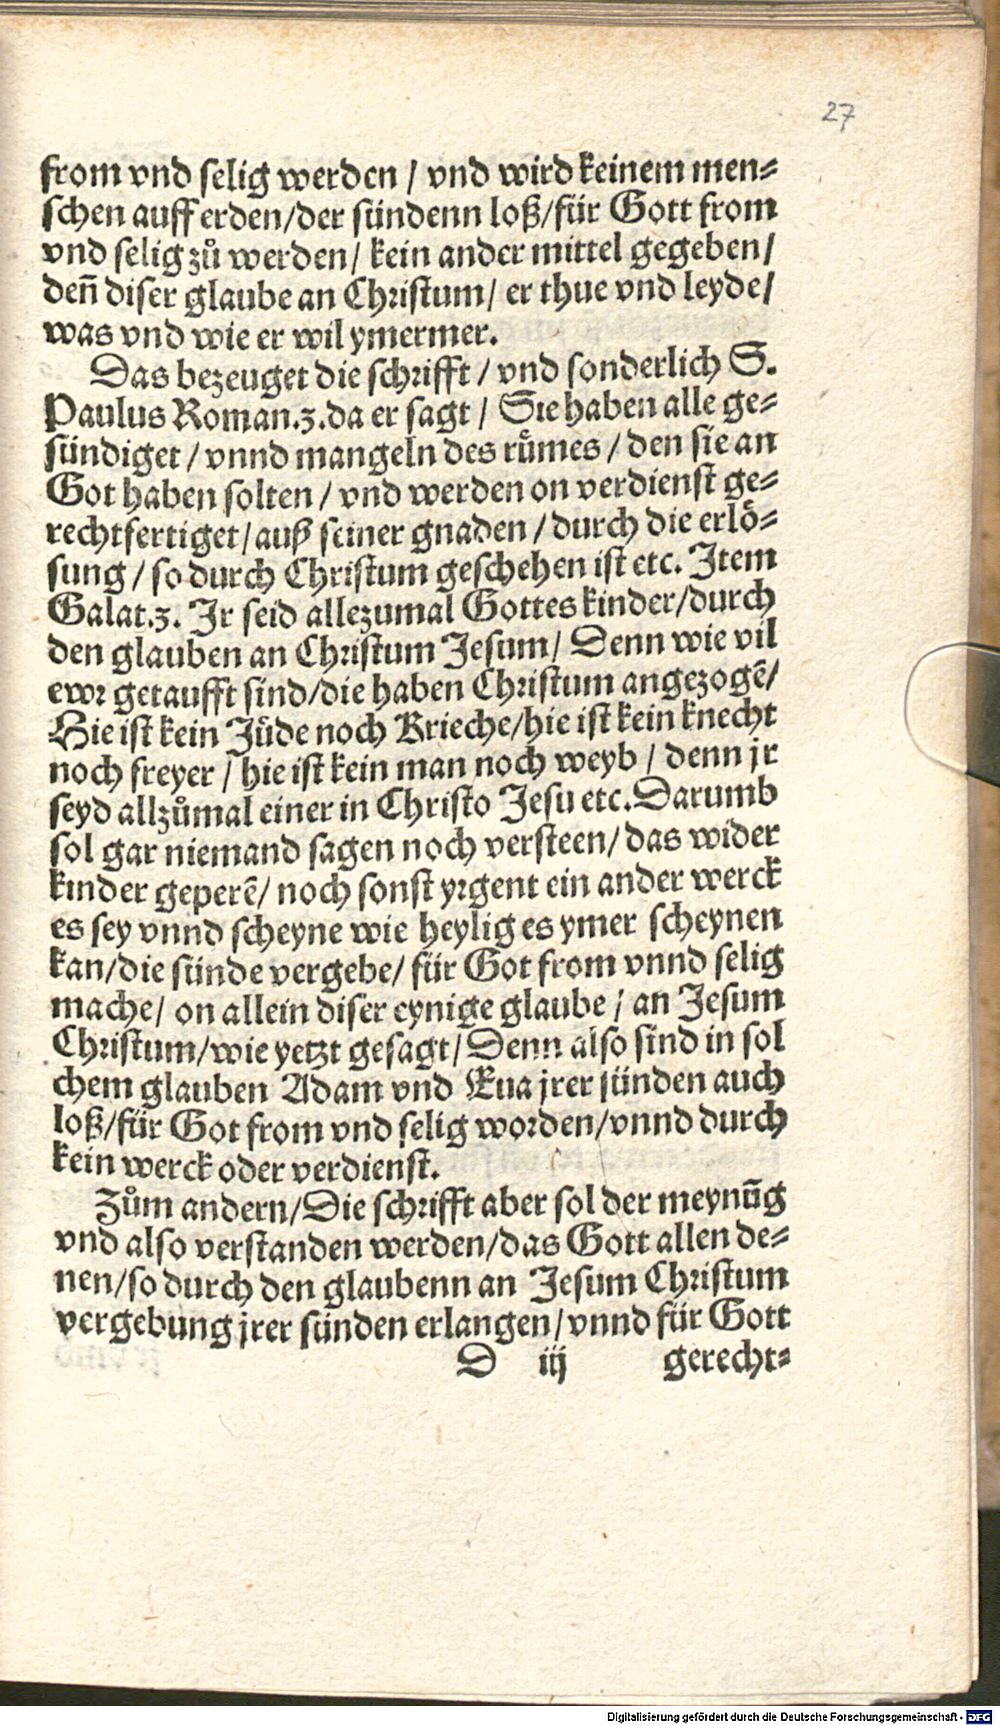 27
from vnd selig werden / vnd wird keinem men⸗
schen auff erden/der sündenn loß/für Gott from
vnd selig zů werden/ kein ander mittel gegeben/
deñ diser glaube an Christum/ er thue vnd leyde/
was vnd wie er wil ymermer.
Das bezeuget die schrifft / vnd sonderlich S.
Paulus Roman.3.da er sagt / Sie haben alle ge⸗
sündiget / vnnd mangeln des růmes / den sie an
Got haben solten / vnd werden on verdienst ge⸗
rechtfertiget/auß seiner gnaden / durch die erlö⸗
sung / so durch Christum geschehen ist etc. Item
Galat.3. Ir seid allezumal Gottes kinder/durch
den glauben an Christum Jesum/ Denn wie vil
ewr getaufft sind/die haben Christum angezogē/
Hie ist kein Jüde noch Krieche/hie ist kein knecht
noch freyer / hie ist kein man noch weyb / denn jr
seyd allzůmal einer in Christo Jesu etc.Darumb
sol gar niemand sagen noch versteen/ das wider
kinder geperē/ noch sonst yrgent ein ander werck
es sey vnnd scheyne wie heylig es ymer scheynen
kan/die sünde vergebe/ für Got from vnnd selig
mache/ on allein diser eynige glaube / an Jesum
Christum/wie yetzt gesagt/ Denn also sind in sol
chem glauben Adam vnd Eua jrer sünden auch
loß/für Got from vnd selig worden/vnnd durch
kein werck oder verdienst.
Zům andern/Die schrifft aber sol der meynūg
vnd also verstanden werden/das Gott allen de⸗
nen/so durch den glaubenn an Jesum Christum
vergebung jrer sünden erlangen/vnnd für Gott
D iij gerecht⸗
Digitalisierung gefördert durch die Deutsche Forschungsgemeinschaft - DFG